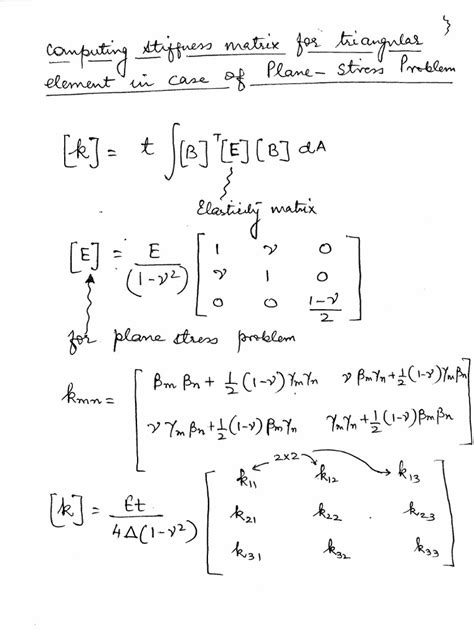 Computing stiffness matrix for triangular
element in case of Plane-stress Problem
[k] = t ∫[B]ᵀ[E][B] dA
Elasticity matrix
[E] = E/(1-ν²) [1 ν 0; ν 1 0; 0 0 (1-ν)/2]
for plane stress problem
kmn = [βmβn + ½(1-ν)γmγn  νβmγn + ½(1-ν)γmβn; νγmβn + ½(1-ν)βmγn  γmγn + ½(1-ν)βmβn]
2×2
[k] = Et/4Δ(1-ν²) [k11 k12 k13; k21 k22 . k23; k31 k32 k33]